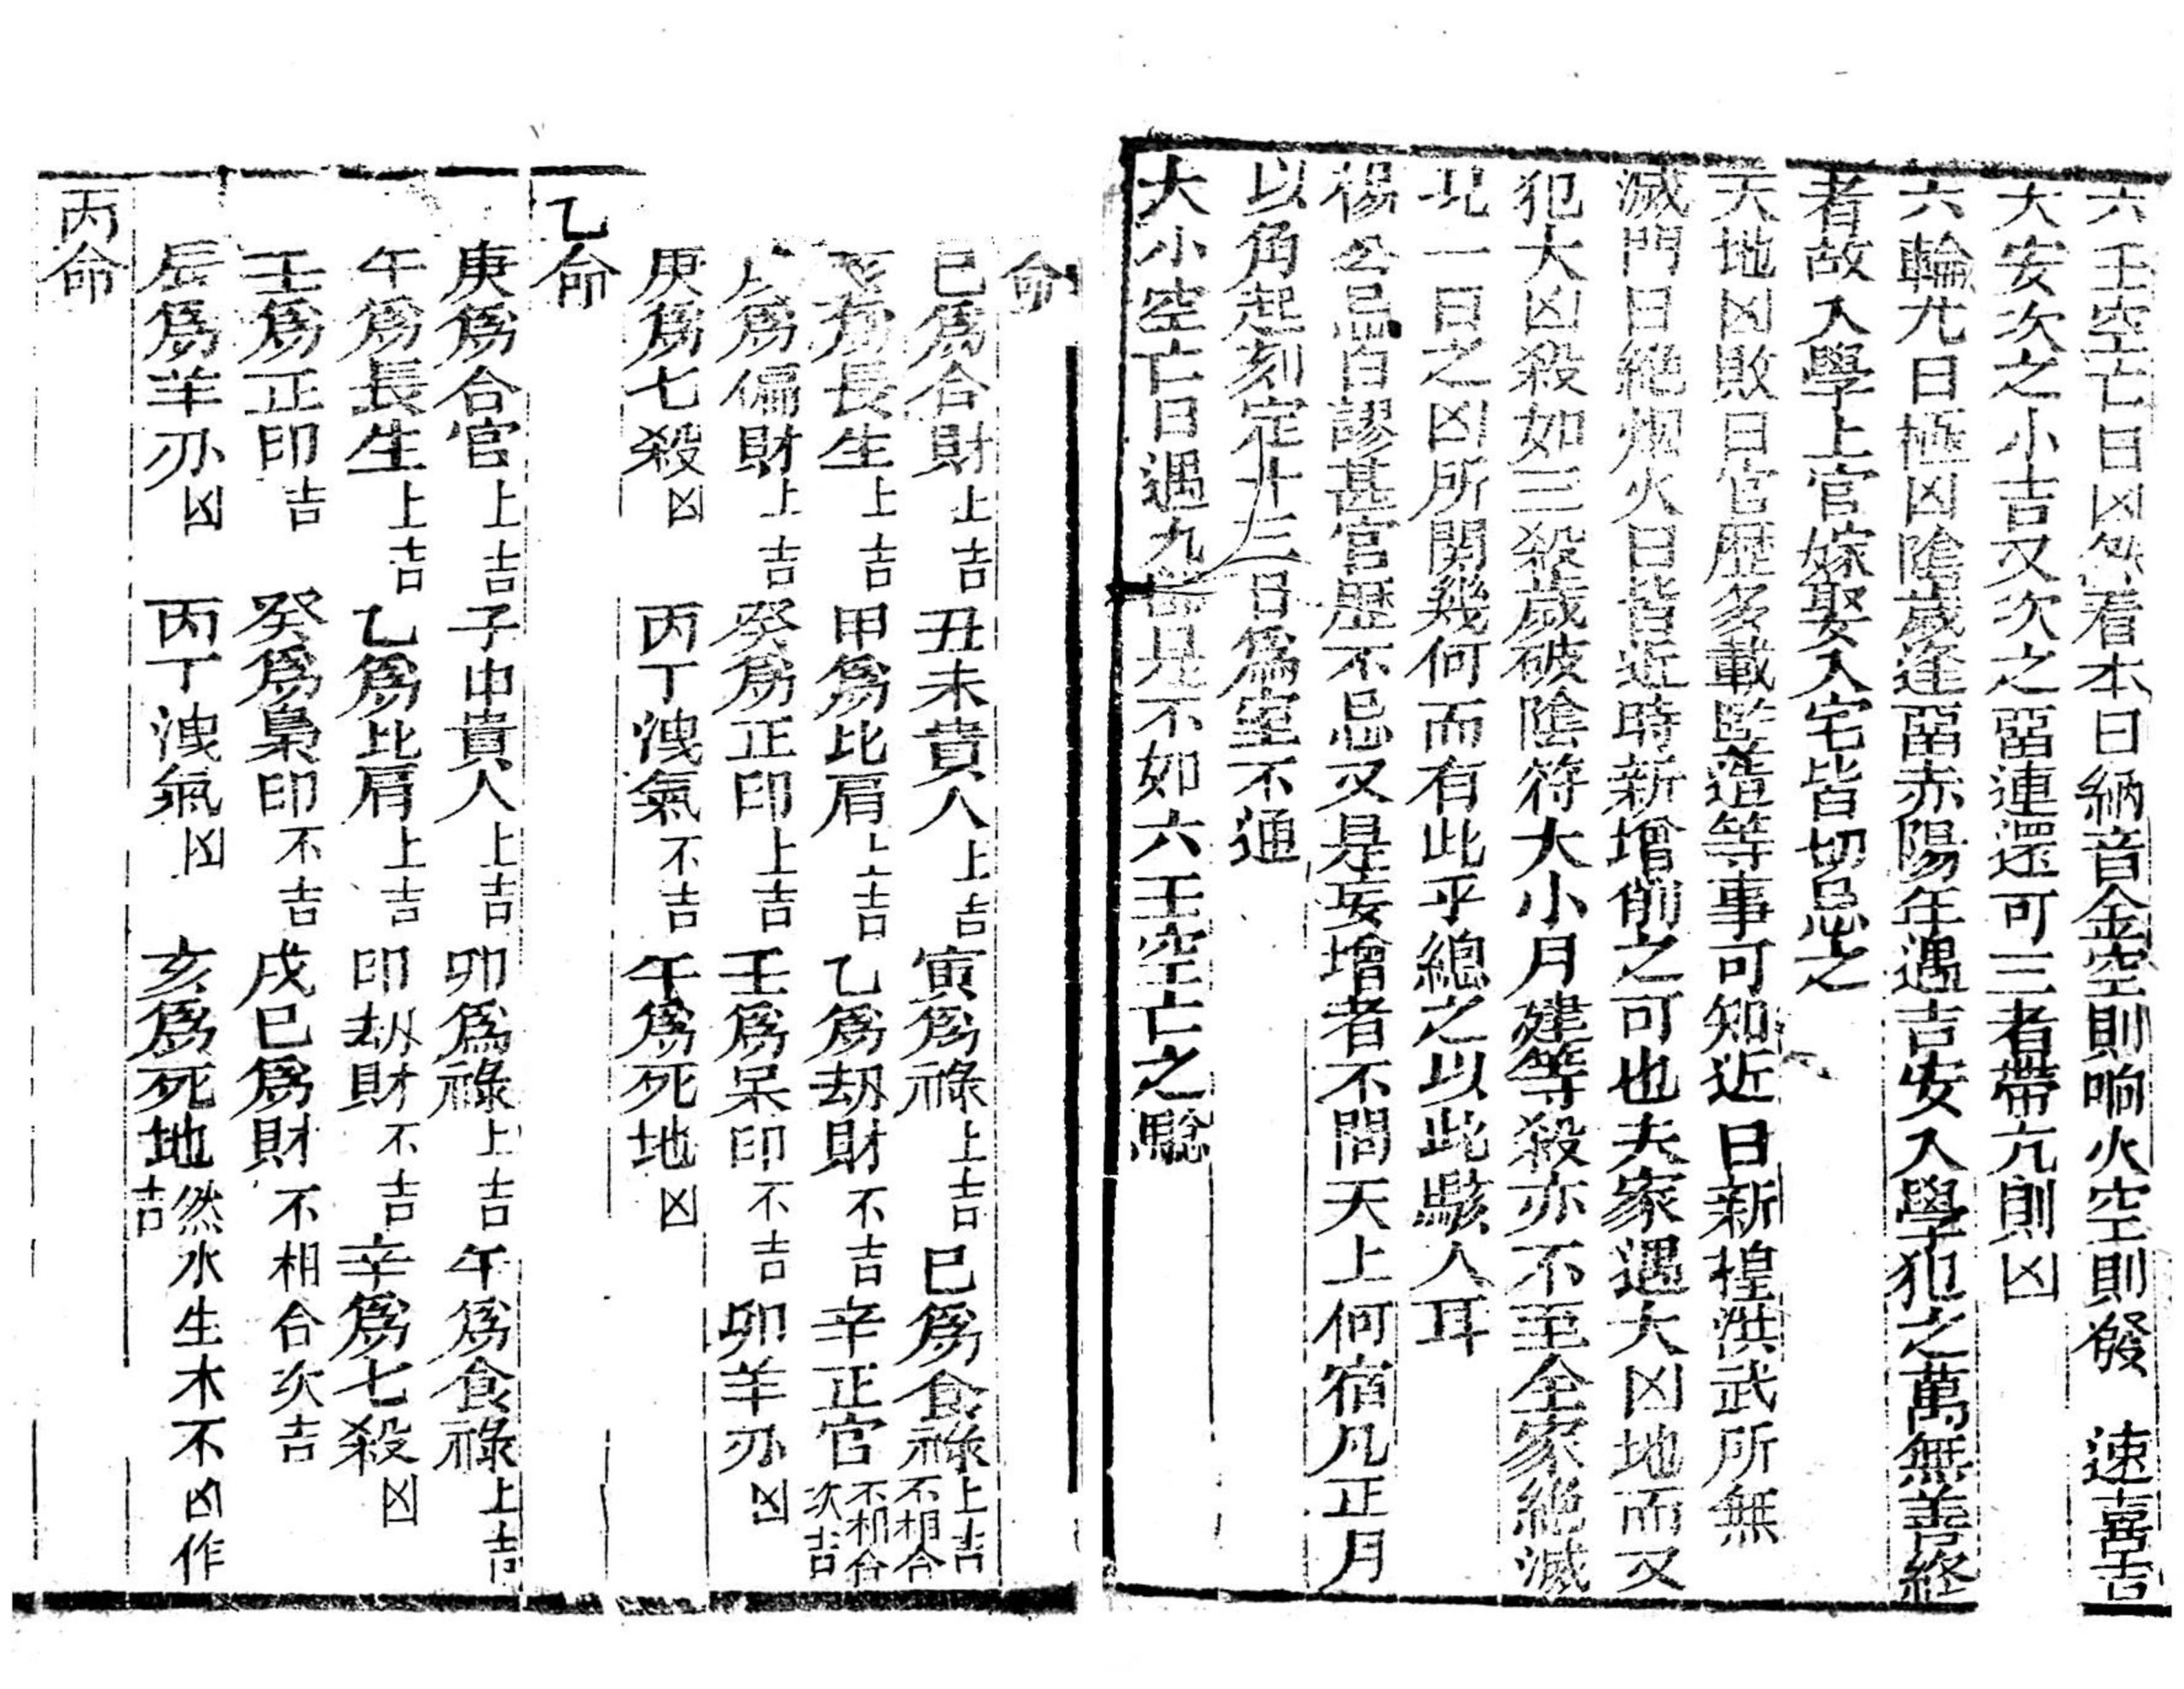 六壬空亡日凶㸔本日納音金空則响火空則發　速喜吉
大安次之小吉又次之畱連還可三者帶亢則凶
六輪尤日極凶陰歲逢畱赤陽年遇吉安入學犯之萬無善終
者故入學上官嫁娶入宅皆切忌之
天地凶敗日官歴多載監造等事可知近日新楻洪武所無
滅門日絶烟火日皆近時新增削之可也夫家遇大凶地而又
犯大凶殺如三殺歲破陰符大小月建等殺亦不至全家絶滅
一日之凶所關幾何而有此乎總之以此駭人耳
楊公忌日謬甚官歴不忌又是妄增者不間天上何宿凡正月
以角起刻定十三日爲室不通
大小空亡日遇九是不如六壬空亡之騐
命
巳爲合財上吉　丑未貴人上吉　寅爲祿上吉　巳爲食祿上吉不相合
爲長生上吉　甲爲比肩上吉　乙爲劫財不吉　辛正官不相合次吉
爲偏財上吉　癸爲正印上吉　壬爲呆印不吉　卯羊刃凶
庚爲七殺凶　丙丁洩氣不吉　午爲死地凶
乙命
庚爲合官上吉　子申貴人上吉　卯爲祿上吉　午爲食祿上吉
午爲長生上吉　乙爲比肩上吉　印劫財不吉　辛爲七殺凶
壬爲正印吉　癸爲梟印不吉　戌巳爲財不相合次吉
辰爲羊刃凶　丙丁洩氣凶　亥爲死地然水生木不凶作吉
丙命